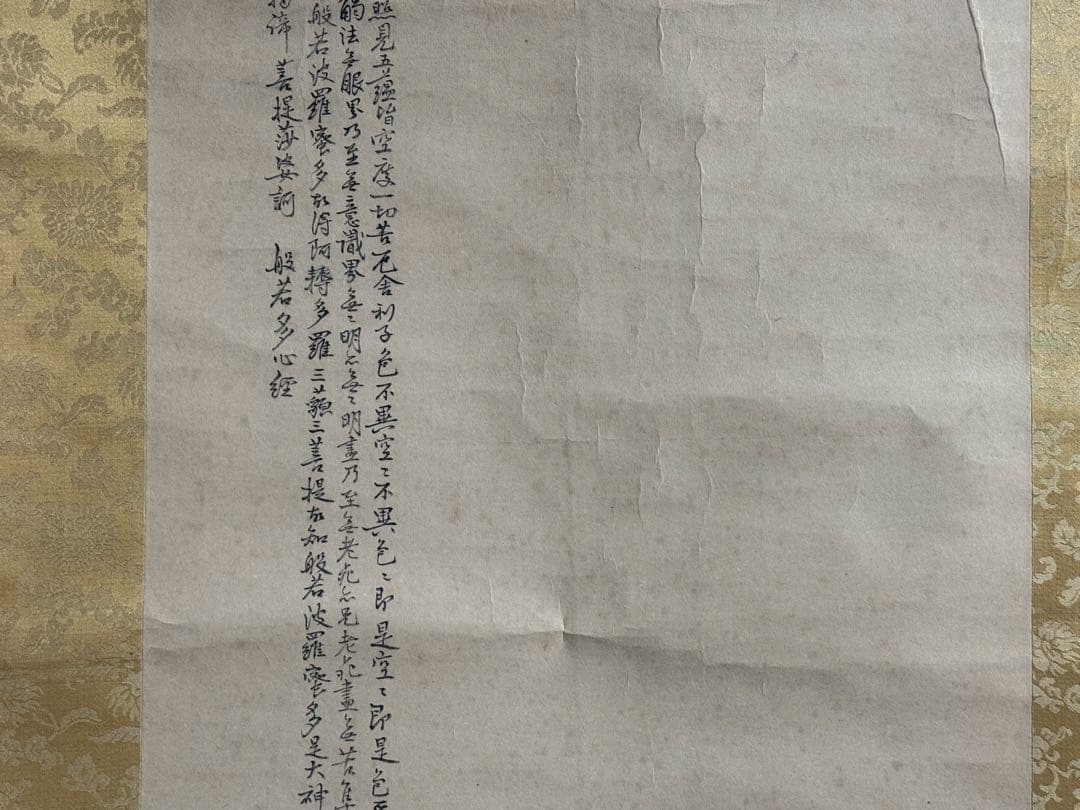 照見五蘊皆空度一切苦厄舍利子色不異空〻不異色〻即是空〻即是色
觸法無眼界乃至無意識界無〻明亦無〻明盡乃至無老死亦无老死盡無苦集
般若波羅蜜多故得阿耨多羅三藐三菩提故知般若波羅蜜多是大神
揭諦 菩提莎婆訶 般若多心經